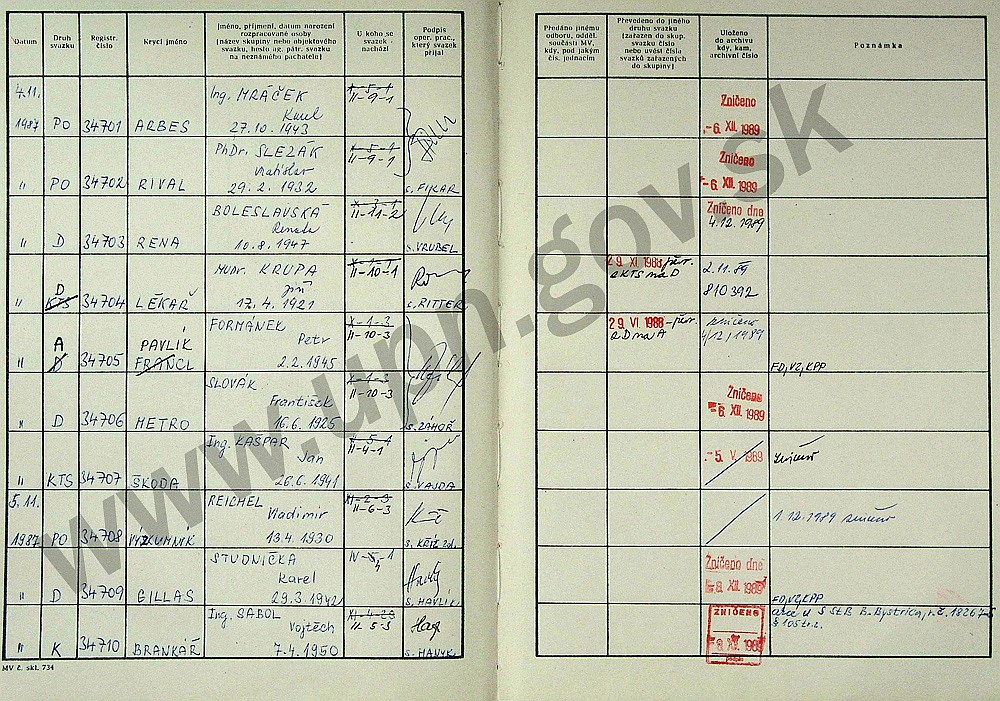 Datum
Druh svazku
Registr. číslo
Krycí jméno
Jméno, příjmení, datum narození
rozpracované osoby
(název skupiny nebo objektového
svazku, heslo ag. pátr. svazku
na neznámého pachatele)
U koho se
svazek
nachází
Podpis
oper. prac.,
který svazek
přijal
Předáno jinému
odboru, odděl.
součásti MV,
kdy, pod jakým
čís. jednacím
Převedeno do jiného
druhu svazku
(zařazen do skup.
svazku číslo
nebo uvést čísla
svazků zařazených
do skupiny)
Uloženo
do archivu
kdy, kam,
archivní číslo
Poznámka
4.11. Ing. MRÁČEK X-5-1
Karel II-9-1
1987 PO 34701 ARBES 27.10.1943
Zničeno
-6. XII. 1989
PhDr. SLEZÁK X-5-1
Vratislav II-9-1
" PO 34702 RIVAL 29.2.1932 s. FIKAR
Zničeno
-6. XII. 1989
BOLESLAVSKÁ X-3-1
Renata II-11-2
" D 34703 RENA 10.8.1947 s. VRUBEL
Zničeno dne
4.12.1989
MUDr. KRUPA
D Jiří II-10-1
" KTS 34704 LÉKAŘ 17.4.1921 s. RITTER
29. XI 1988 přev.
z KTS na D
2.11.89
810392
FORMÁNEK X-1-3
A PAVLÍK Petr II-10-3
" D 34705 FRANCL 2.2.1945
29. VI. 1988 - přev.
z D na A
zničeno
4/12/1989
FD, VZ, KPP
SLOVÁK X-1-3
František II-10-3
" D 34706 METRO 16.6.1925 s. ZÁHOŘ
Zničeno
-6. XII. 1989
Ing. KAŠPAR X-5-1
Jan II-4-1
" KTS 34707 ŠKODA 26.6.1941 s. VAJDA
-5. V. 1989 zničeno
5.11. REICHEL XI-2-3
Vladimír II-6-3
1987 PO 34708 VÝZKUMNÍK 13.4.1930 s. KŘÍŽ
1.12.1989 zničeno
STUDNIČKA IV-5-1
Karel 4
" D 34709 GILLAS 29.3.1942 s. HAVLÍK
Zničeno dne
-8. XII. 1989
FD, VZ, KPP
Ing. SABOL
Vojtěch II-5-3
" K 34710 BRANKÁŘ 7.4.1950
ZNIČENO
-8. XII. 1989
podpis
akce u S StB B. Bystrica, r.č. 18267
§ 105 tr.z.
MV č. skl. 734
www.upn.gov.sk